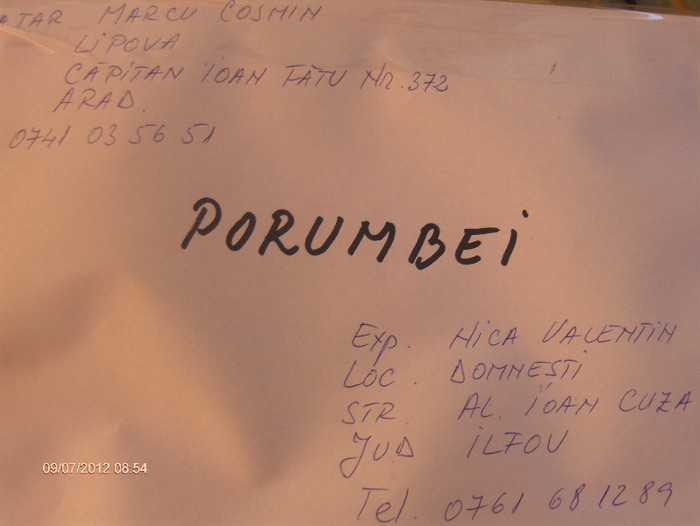 ATAR. MARCU COSMIN
LIPOVA
CĂPITAN IOAN FĂTU Nr. 372
ARAD.
0741 03 56 51
PORUMBEI
Exp. NICA VALENTIN
LOC. DOMNEȘTI
STR. AL. IOAN CUZA
JUD ILFOV
Tel. 0761 68 12 89
09/07/2012 08:54